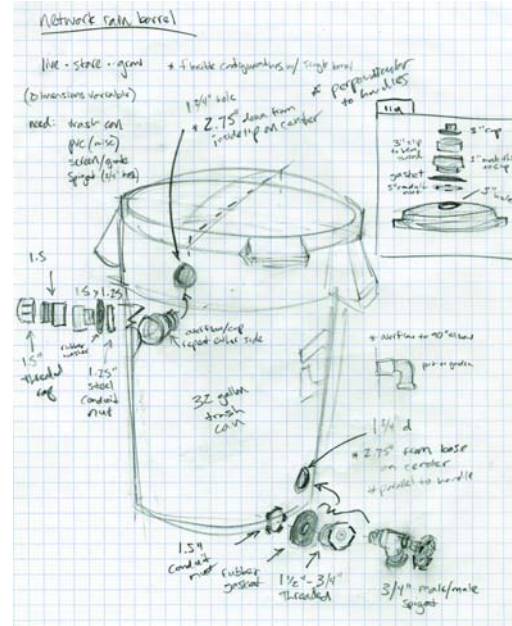 network rain barrel
live · store · grow
* flexible configurations w/ single barrel
(Dimensions variable)
need: trash can
pvc (misc)
screen/grate
spigot
1 3/4" hole
* 2.75" down from
inside lip on center
* perpendicular
to handles
lid
3" cap
3" slip
gasket
3"
hole
1.5
1.5 x 1.25
1.5"
threaded
cap
rubber
washer
1.25"
steel
conduit
nut
overflow/cap
repeat other side
32 gallon
trash
can
* overflow to 90° elbow
1 3/4" d
* 2.75" from base
on center
* parallel to handle
1.5"
conduit
nut
rubber
gasket
1 1/2" - 3/4"
threaded
3/4" male/male
spigot